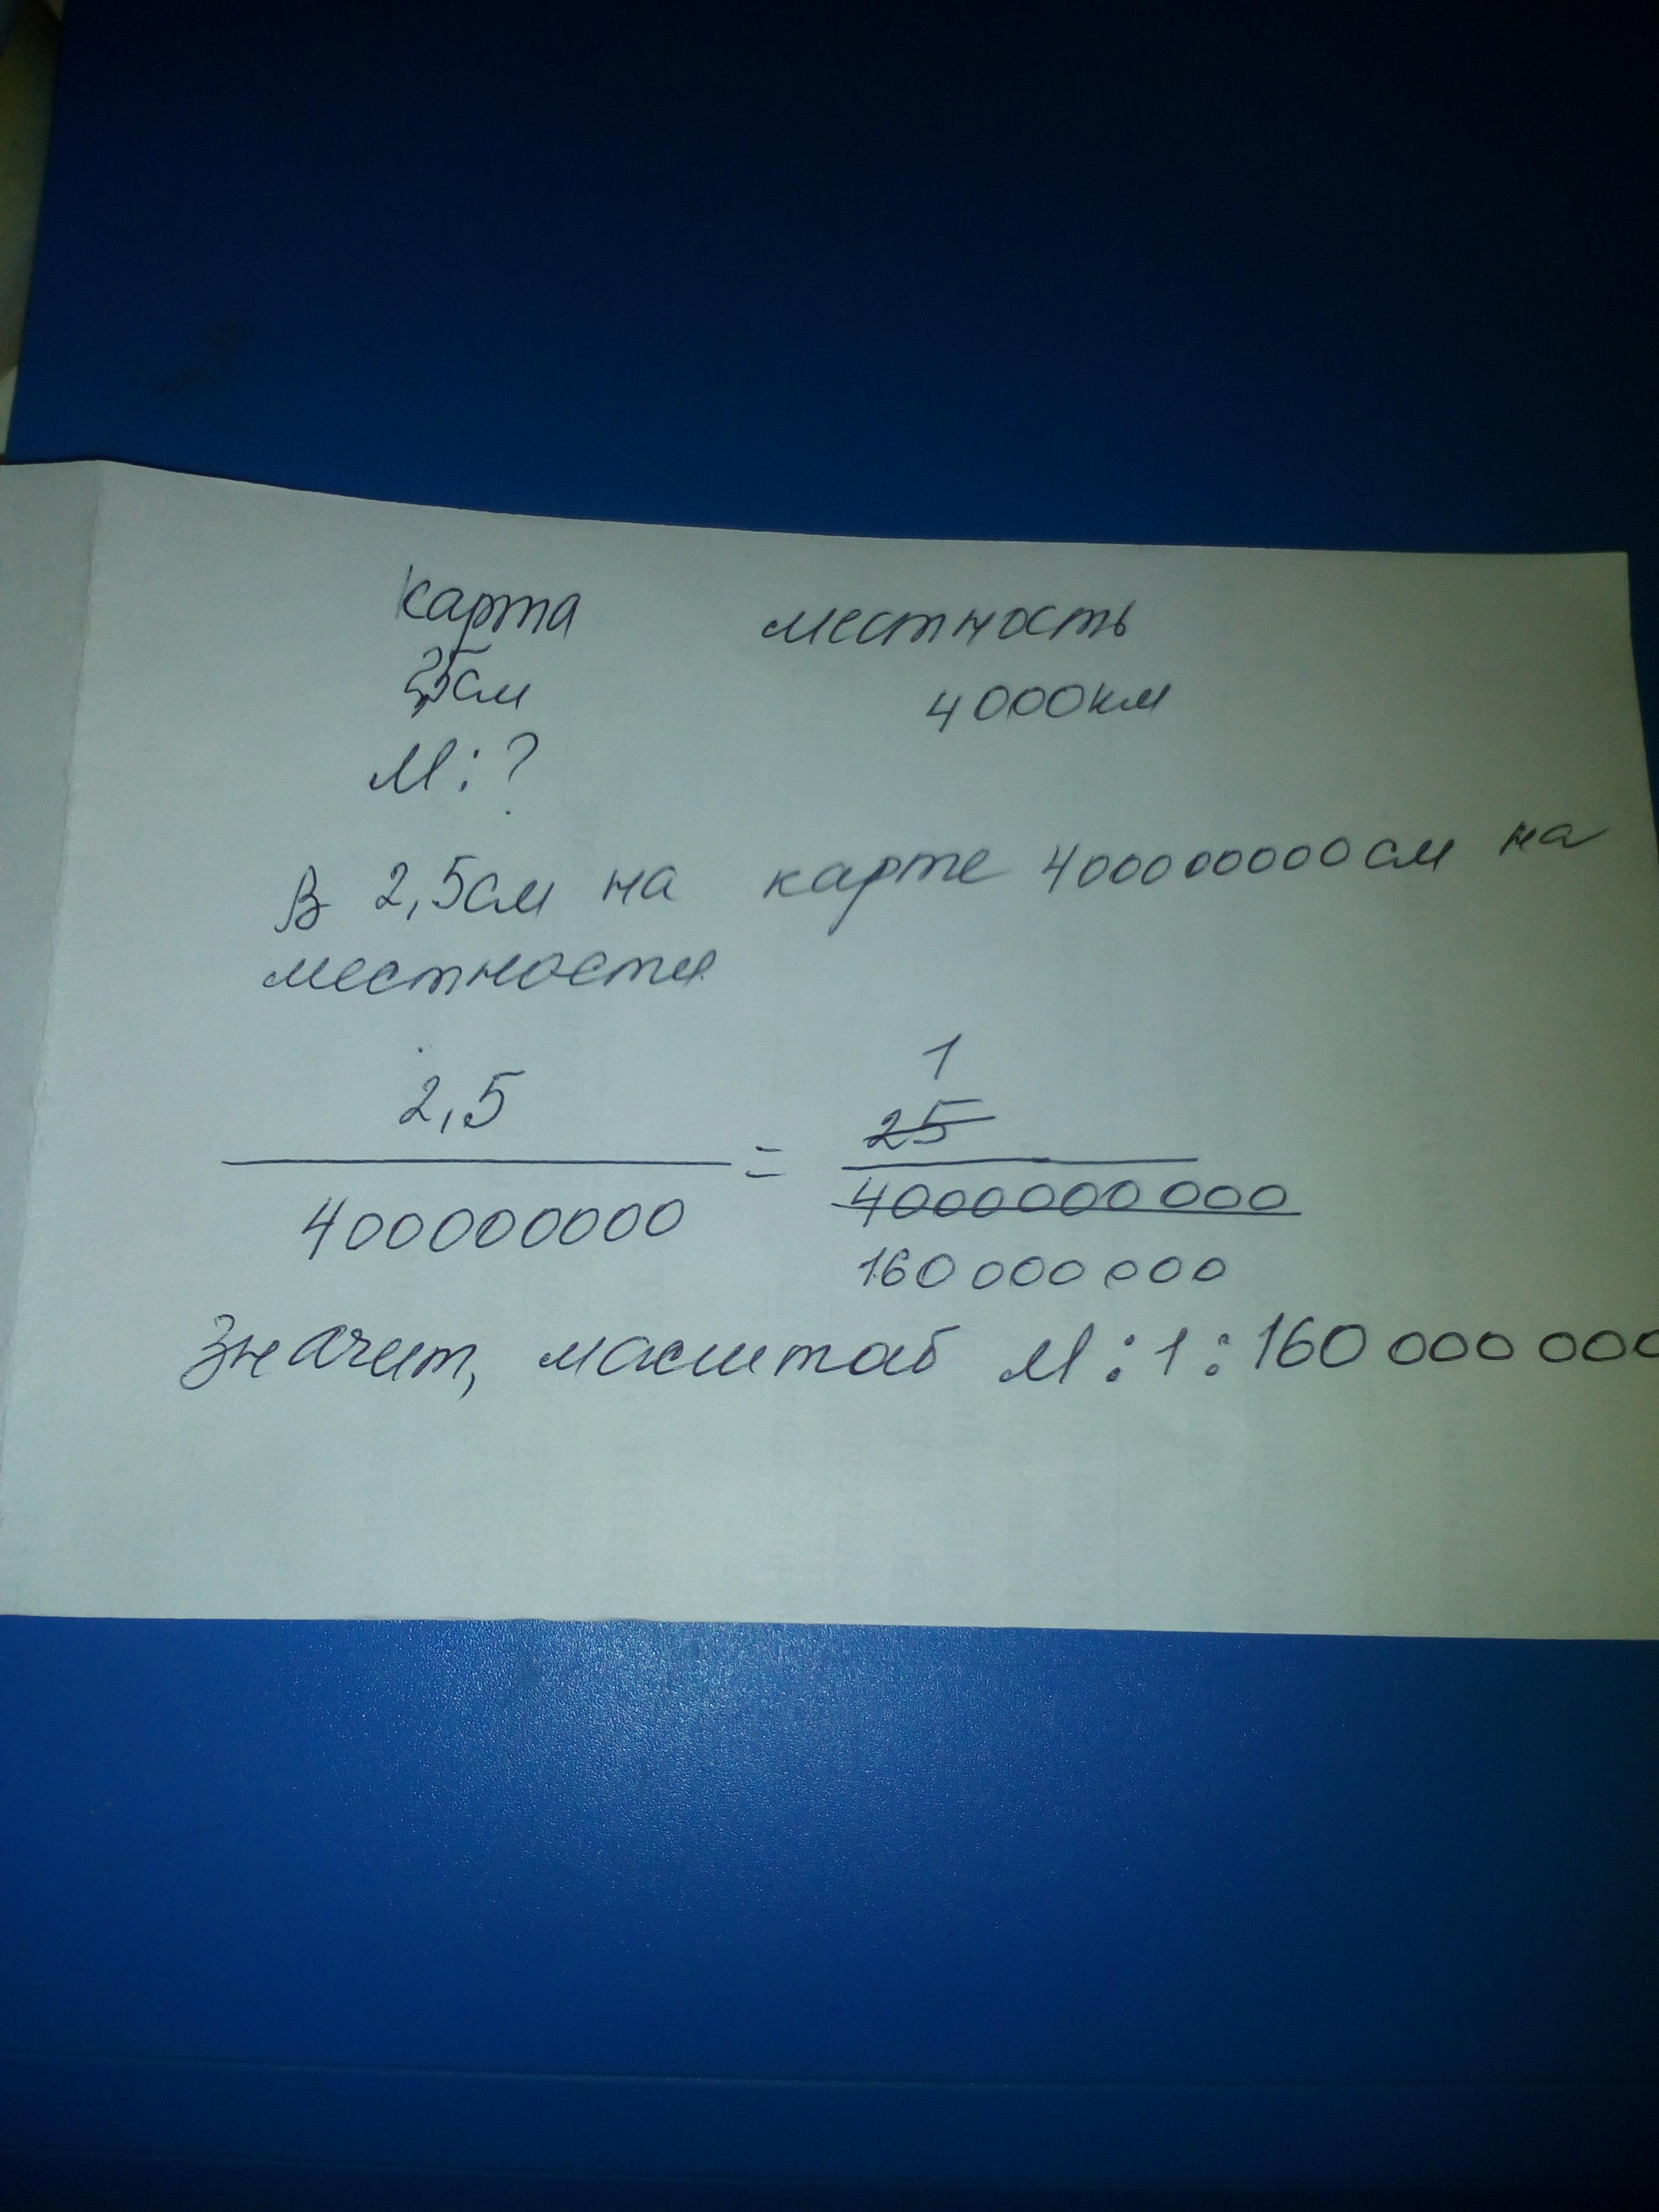 Карта местность
2,5см 4000км
М:?
В 2,5см на карте 400000000см на
местности
1
2,5 = 25
400000000 4000000000
160 000 000
Значит, масштаб М:1:160 000 000